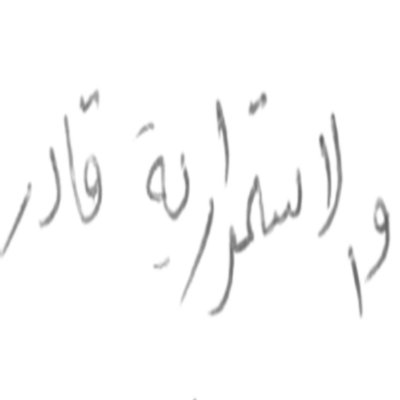 والاستمرارية قادر